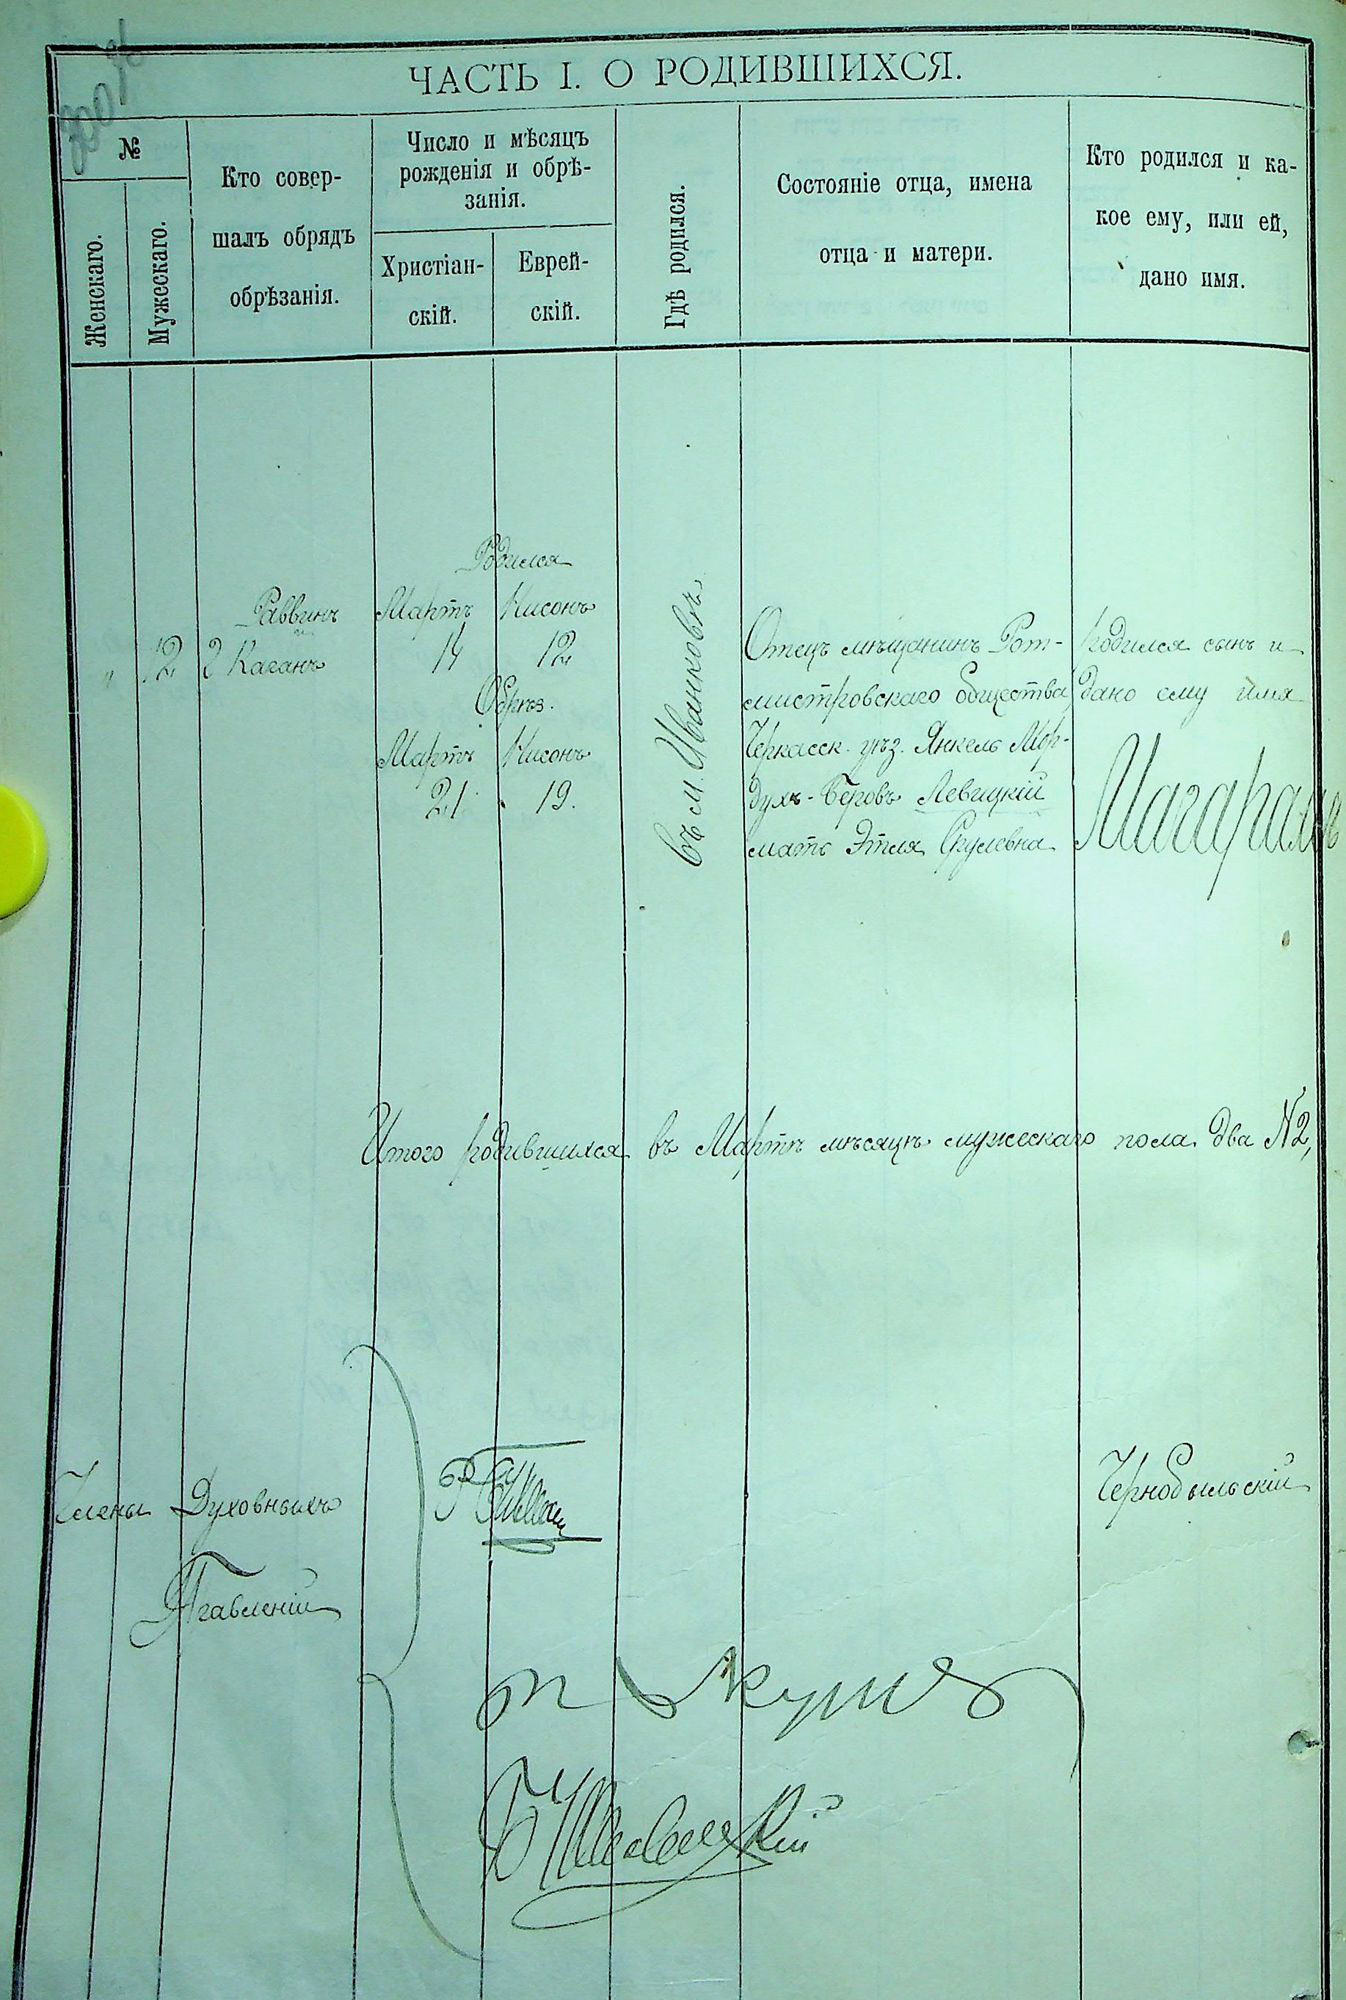 ЧАСТЬ I. О РОДИВШИХСЯ.
№
Женскаго.
Мужескаго.
Кто совер-
шалъ обрядъ
обрѣзанія.
Число и мѣсяцъ
рожденія и обрѣ-
занія.
Христіан-
скій.
Еврей-
скій.
Гдѣ родился.
Состояніе отца, имена
отца и матери.
Кто родился и ка-
кое ему, или ей,
дано имя.
"
12
Раввинъ
Каганъ
Родился
Мартъ Нисонъ
14 12
Обрѣз.
Мартъ Нисонъ
21. 19.
Въ м. Иванковѣ
Отецъ мѣщанинъ Рот-
мистровскаго общества
Черкасск. уѣз. Янкель Мор-
духъ-Беровъ Левицкій
мать Этля Срулевна
Родился сынъ и
дано ему имя
Магарамъ
Итого родившихся въ Мартѣ мѣсяцѣ мужескаго пола два № 2,
Члены Духовныхъ
Правленій
Чернобыльскій